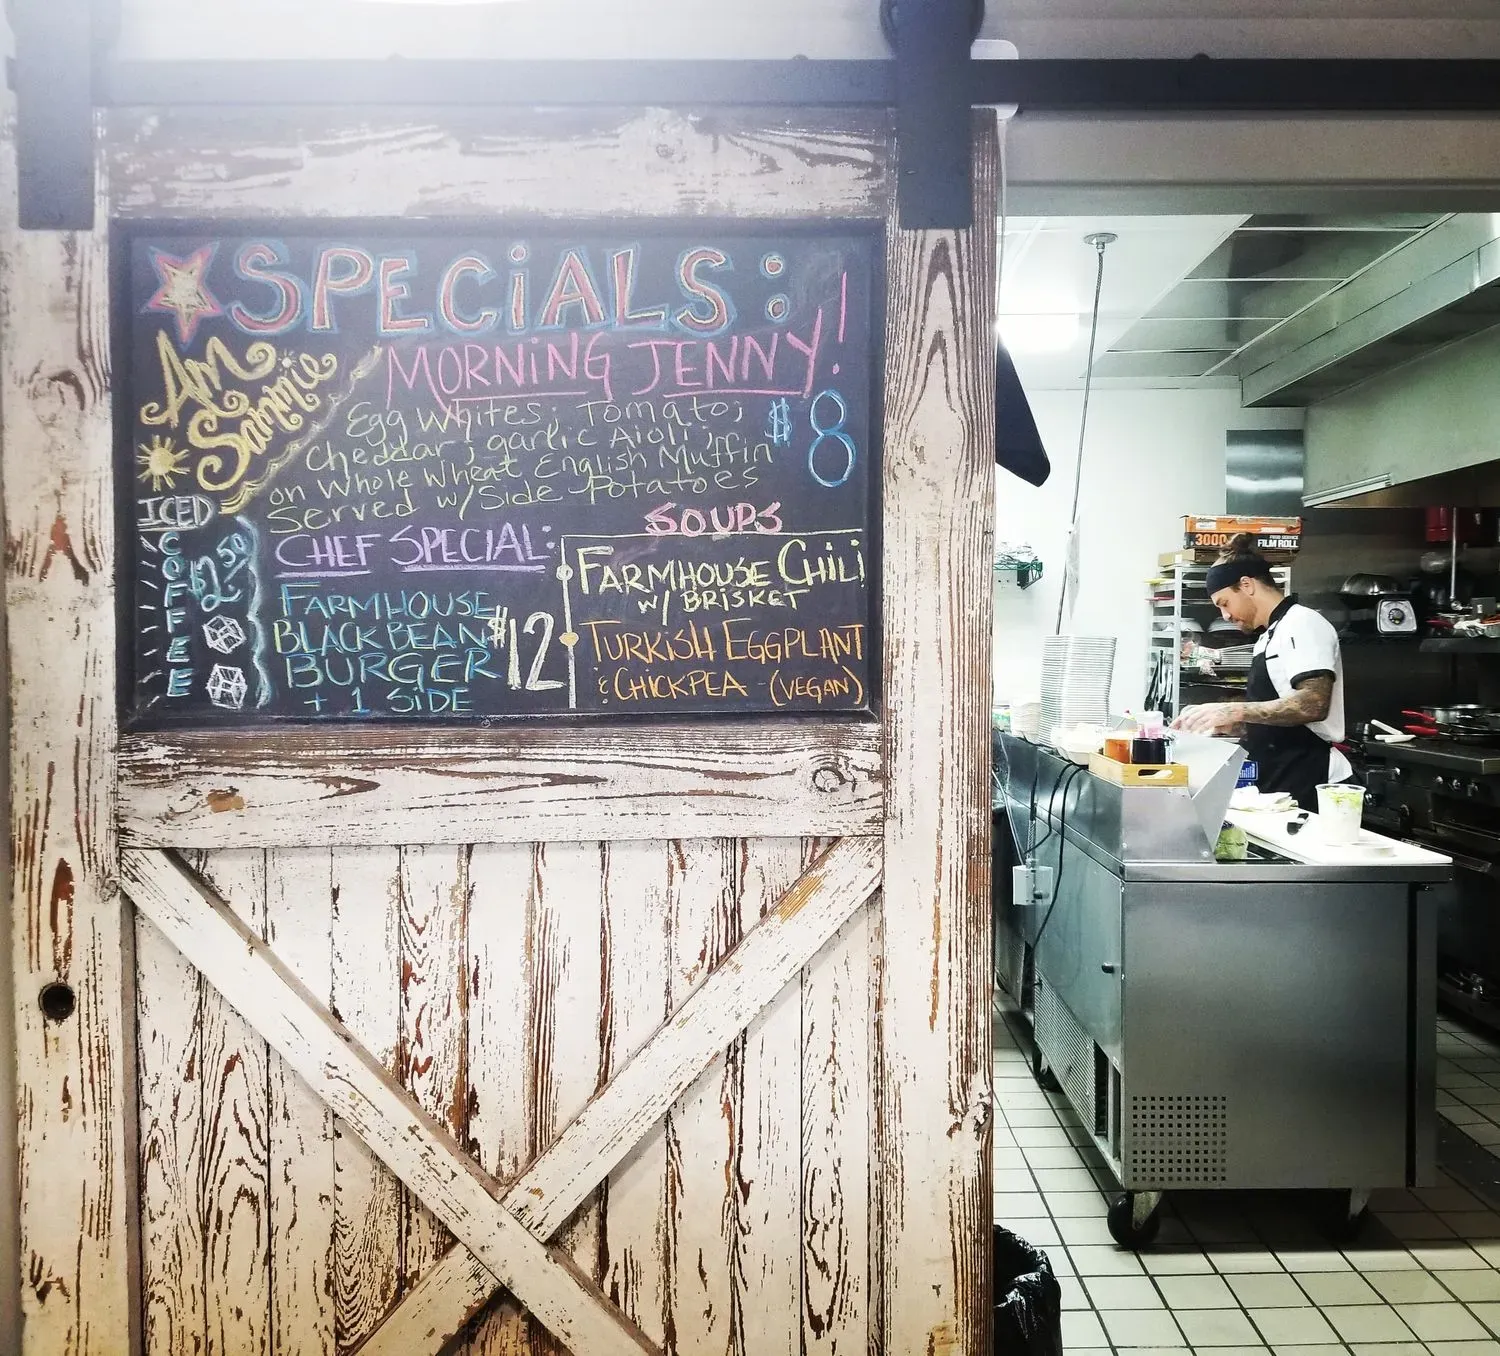 SPECIALS:
AM
Sammie
MORNING JENNY!
Egg Whites; Tomato;
Cheddar; garlic Aioli;
on Whole Wheat English Muffin
Served w/ Side Potatoes
$8
ICED
COFFEE
$2.50
CHEF SPECIAL:
FARMHOUSE
BLACK BEAN
BURGER
+ 1 SIDE
$12
SOUPS
FARMHOUSE CHILI
W/ BRISKET
TURKISH EGGPLANT
& CHICKPEA - (VEGAN)
3000
FILM ROLL